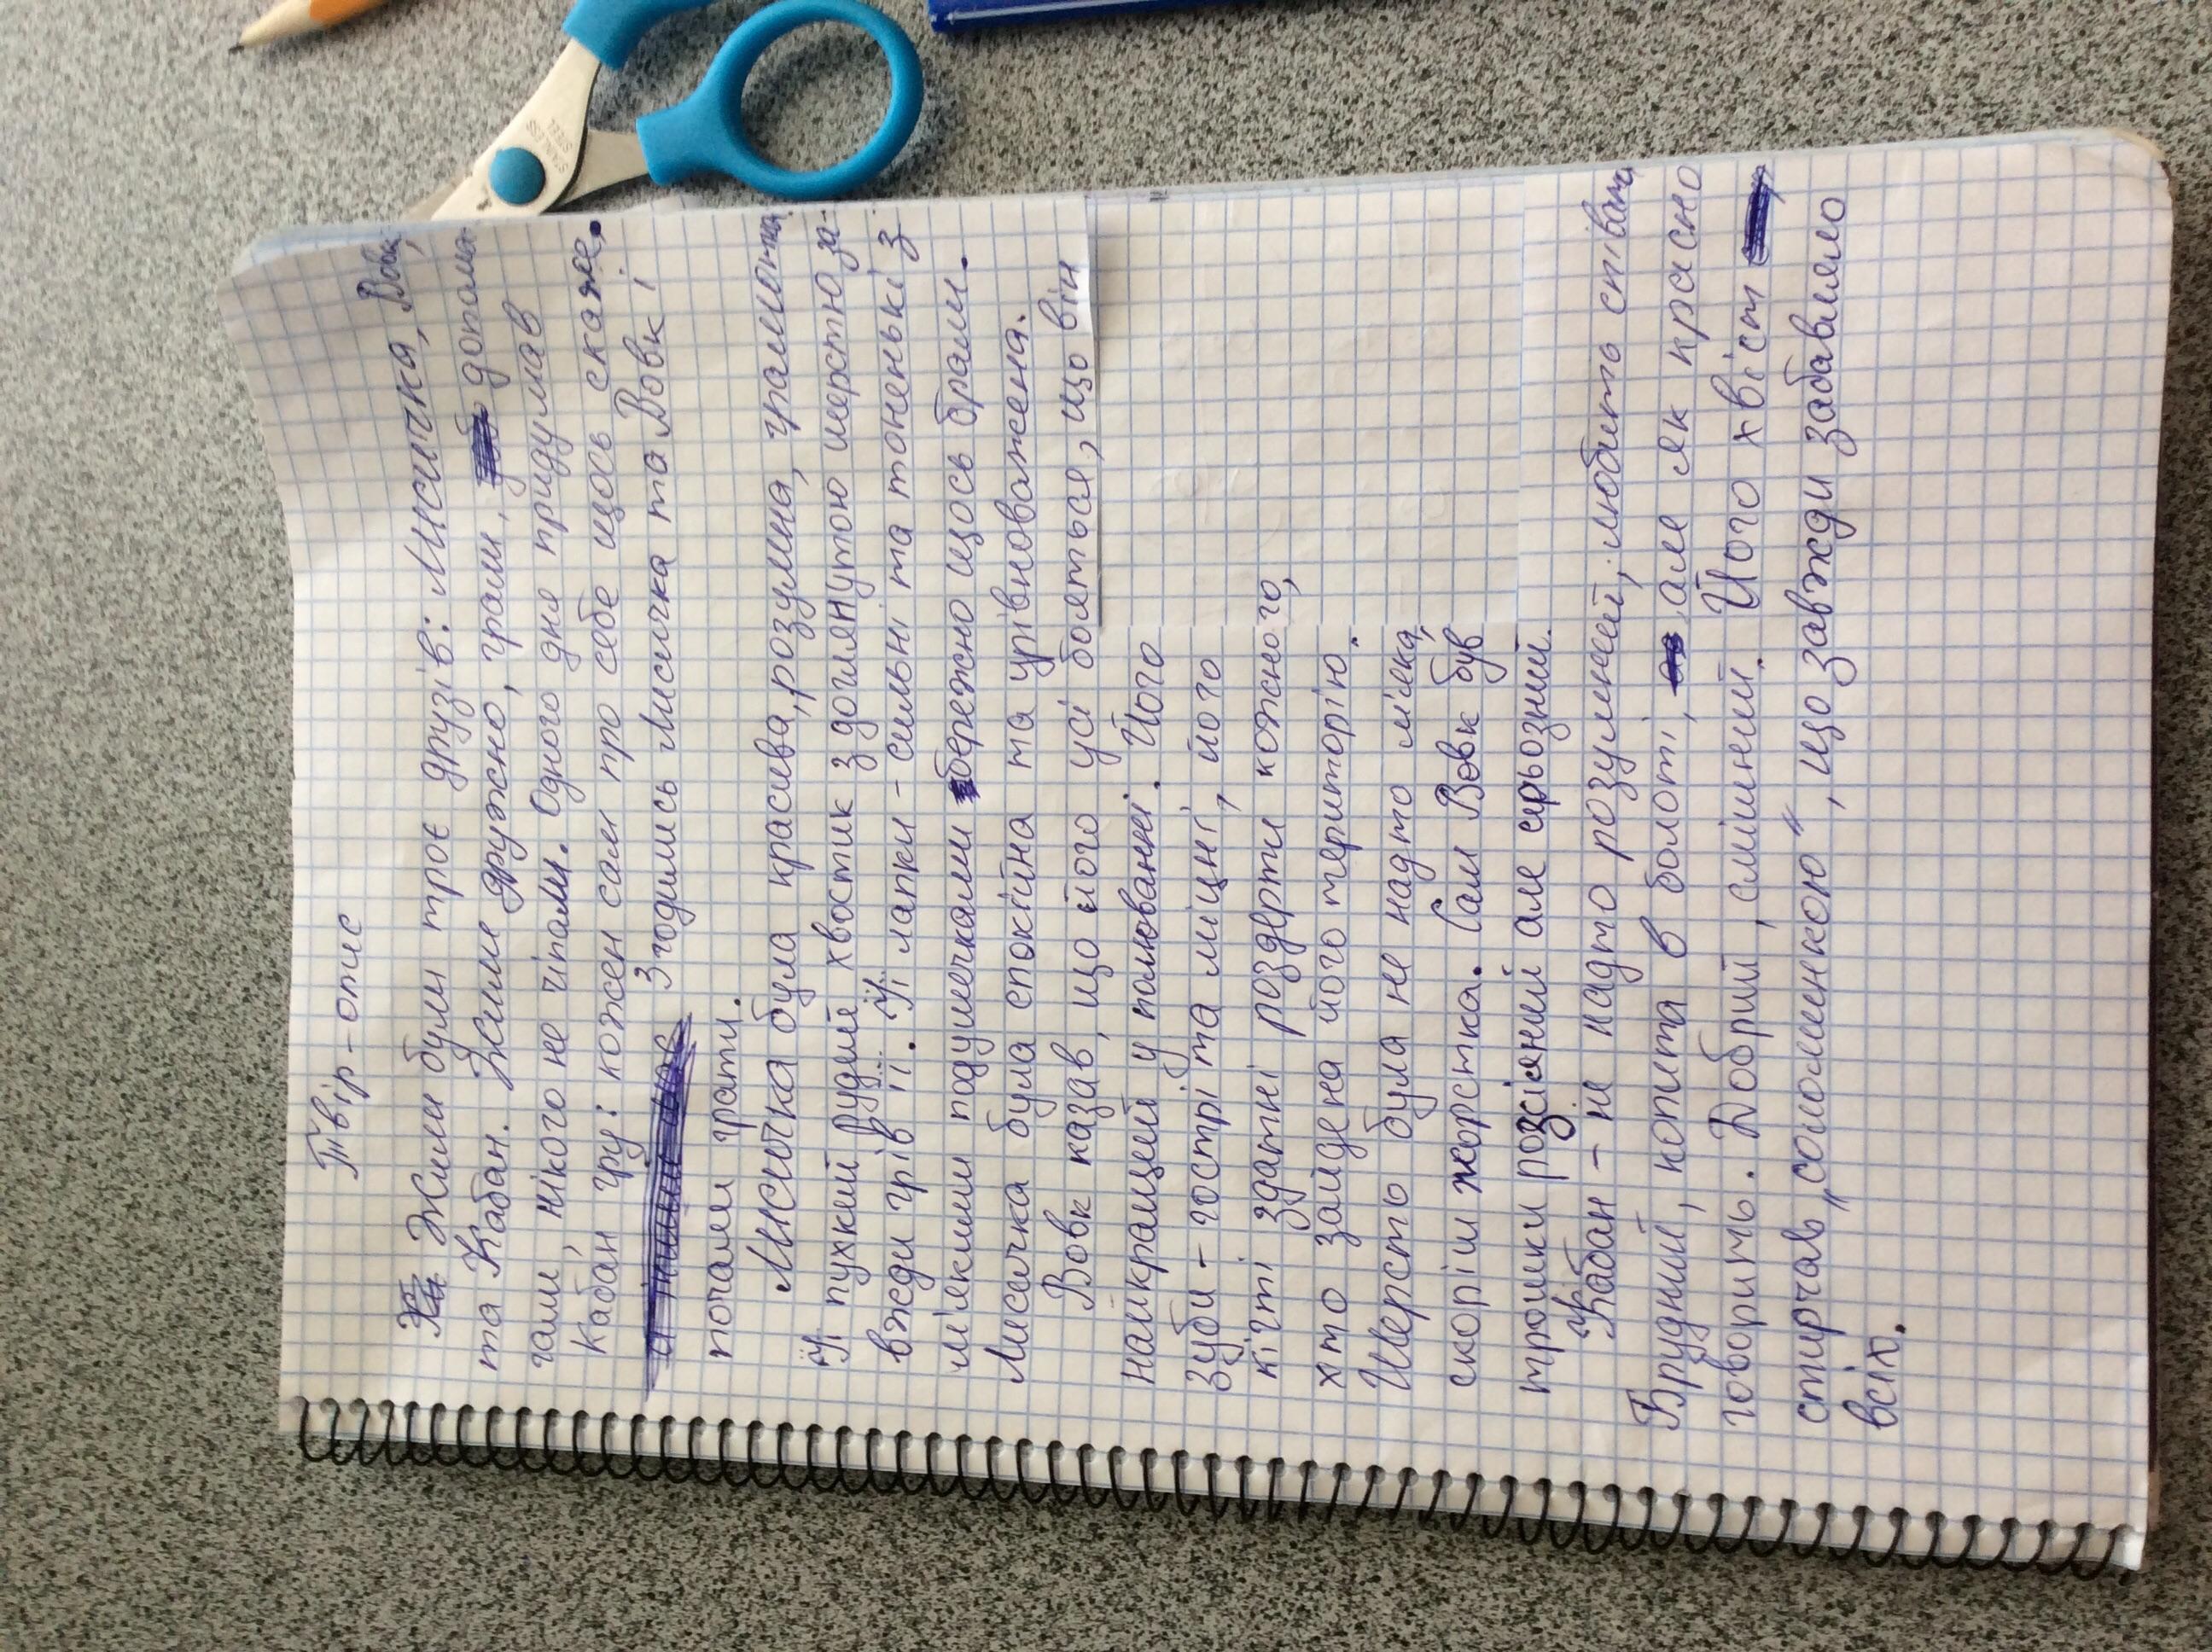 Твір-опис
Жили були троє друзів: Лисичка, Вовк,
та Кабан. Жили дружно, грали, допома-
гали, нікого не чіпали. Одного дня придумав
Кабан гру: кожен сам про себе щось скаже.
Згодились Лисичка та Вовк і
почали грати.
Лисичка була красива, розумна, грамотна.
Її пухкий рудий хвостик з доглянутою шерстю за-
вжди грів її. Її лапки - сильні та тоненькі з
м'якими подушечками бережно щось брали.
Лисичка була спокійна та урівноважена.
Вовк казав, що його усі бояться, що він
найкращий у полюванні. Його
зуби - гострі та міцні, його
кігті здатні роздерти кожного,
хто зайде на його територію.
Шерсть була не надто м'яка,
скоріш жорстка. Сам Вовк був
трошки розсіяний але серьозний.
Кабан - не надто розумний, любить співати
Брудний, копита в болоті, але як красно
говорить. Добрий, смішний. Його хвіст
стирчав „соломинкою", що завжди забавляло
всіх.
STAINLESS
STEEL